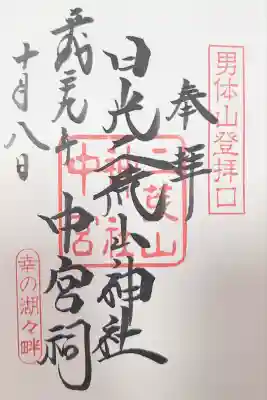 男体山登拝口
奉拝
日光二荒山神社
中宮祠
二荒山
神社
中宮
十月八日
幸の湖々畔